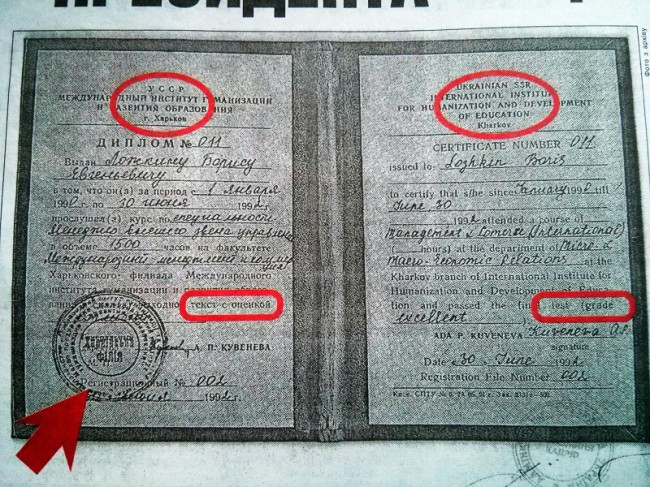 ПРЕЗИДЕНТА
Фото з архіву
УССР
МЕЖДУНАРОДНЫЙ ИНСТИТУТ ГУМАНИЗАЦИИ
И РАЗВИТИЯ ОБРАЗОВАНИЯ
г. Харьков
ДИПЛОМ № 011
Выдан Ложкину Борису
Евгеньевичу
в том, что он(а) за период с 1 января
1990 г. по 30 июня 1992 г.
прослушал(а) курс по специальности
Менеджер высшего звена управления
в объеме 1500 часов на факультете
Международный менеджмент и
Харьковского филиала Международного
института гуманизации и развития образо-
текст с оценкой
А. П. КУВЕНЕВА
Регистрационный № 002
1992 г.
UKRAINIAN SSR
INTERNATIONAL INSTITUTE
FOR HUMANIZATION AND DEVELOPMENT
OF EDUCATION
Kharkov
CERTIFICATE NUMBER 011
issued to Lozhkin Boris
to certify that s/he since January 1990 till
June, 30
1992 attended a course of
management & Comerce (International)
( hours) at the department of Micro- &
Macro-Economic Relations at the
Kharkov branch of International Institute for
Humanization and Development of Educa-
tion and passed the final test (grade
excellent )
ADA P. KUVENEVA Kuveneva A.P.
signature
Date 30 June 1992
Registration File Number 002